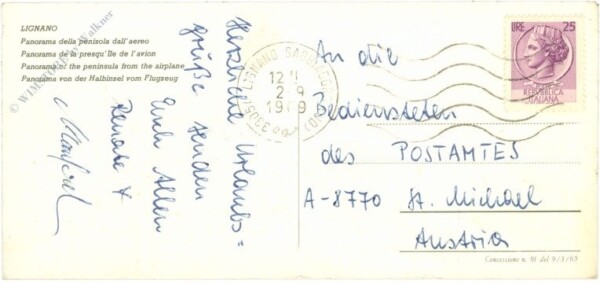 LIGNANO
Panorama della penisola dall'aereo
Panorama de la presqu'île de l'avion
Panorama of the peninsula from the airplane
Panorama von der Halbinsel vom Flugzeug
© WIMSTORE by Walkner
Herzliche Urlaubs=
grüße senden
Euch Allen
Renate +
Manfred
LIGNANO SABBIADORO
33054
12
2 9
19 9
LIRE 25
REPUBBLICA
ITALIANA
An die
Bediensteten
des POSTAMTES
A-8770 St. Michael
Austria
Concessione n. 91 del 9/3/65